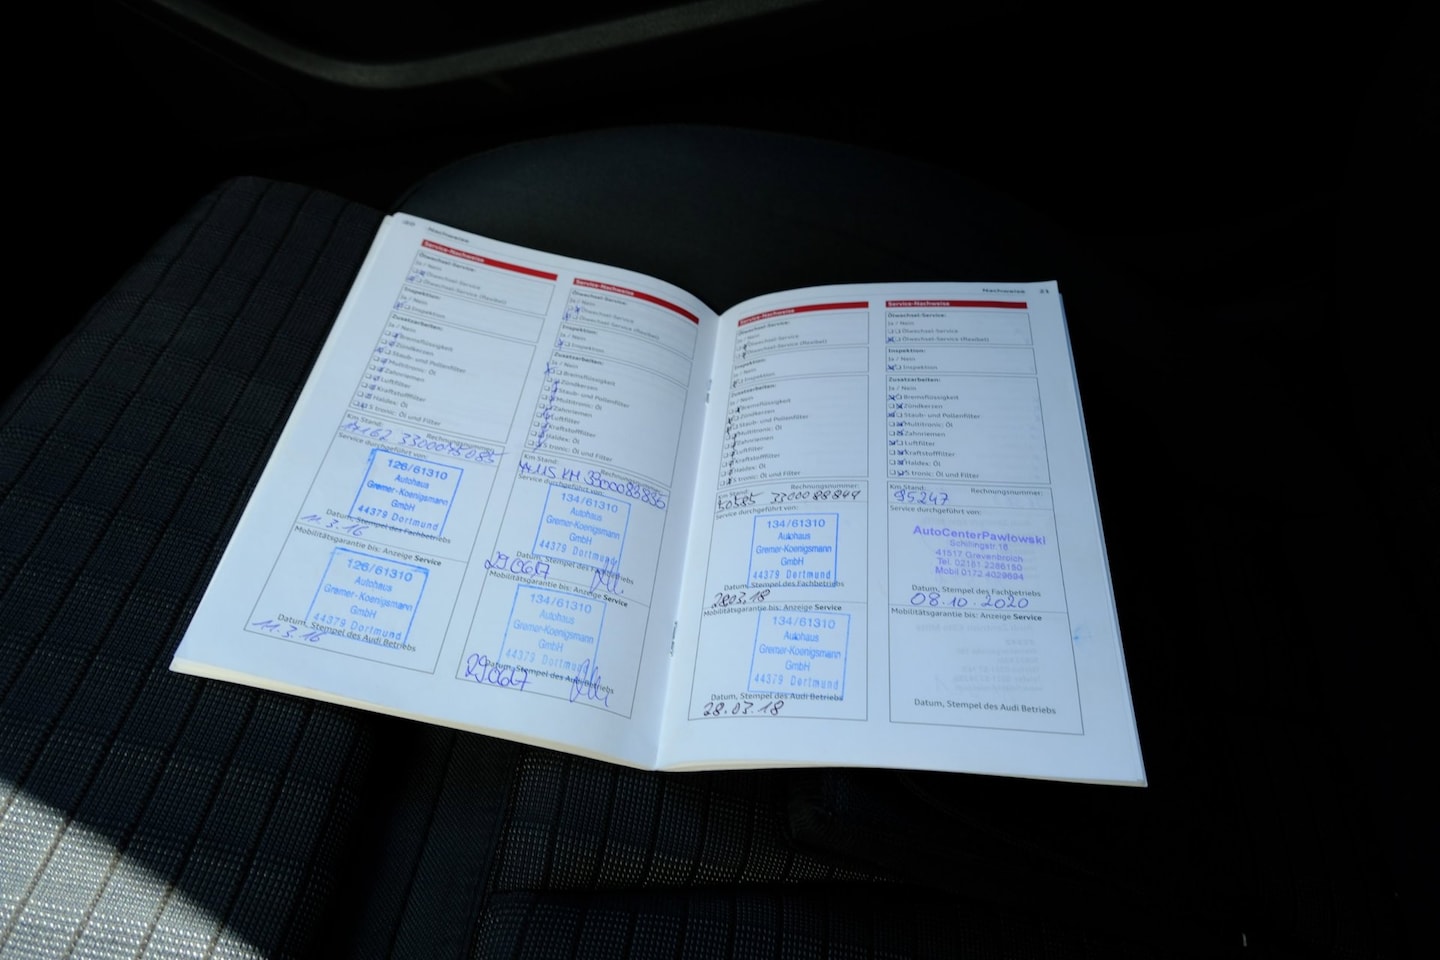 20 Nachweise
Service-Nachweise
Ölwechsel-Service:
Ja / Nein
Ölwechsel-Service
Ölwechsel-Service (flexibel)
Inspektion:
Ja / Nein
Inspektion
Zusatzarbeiten:
Ja / Nein
Bremsflüssigkeit
Zündkerzen
Staub- und Pollenfilter
Multitronic: Öl
Zahnriemen
Luftfilter
Kraftstofffilter
Haldex: Öl
S tronic: Öl und Filter
Km Stand: Rechnungsnummer:
Service durchgeführt von:
126/61310
Autohaus
Gremer-Koenigsmann
GmbH
44379 Dortmund
Datum, Stempel des Fachbetriebs
11.3.16
Mobilitätsgarantie bis: Anzeige Service
126/61310
Autohaus
Gremer-Koenigsmann
GmbH
44379 Dortmund
Datum, Stempel des Audi Betriebs
11.3.16
Service-Nachweise
Ölwechsel-Service:
Ja / Nein
Ölwechsel-Service
Ölwechsel-Service (flexibel)
Inspektion:
Ja / Nein
Inspektion
Zusatzarbeiten:
Ja / Nein
Bremsflüssigkeit
Zündkerzen
Staub- und Pollenfilter
Multitronic: Öl
Zahnriemen
Luftfilter
Kraftstofffilter
Haldex: Öl
S tronic: Öl und Filter
Km Stand:
KM 3300083835
Service durchgeführt von:
134/61310
Autohaus
Gremer-Koenigsmann
GmbH
44379 Dortmund
Datum, Stempel des Fachbetriebs
29.06.17
Mobilitätsgarantie bis: Anzeige Service
134/61310
Autohaus
Gremer-Koenigsmann
GmbH
44379 Dortmund
Datum, Stempel des Audi Betriebs
29.06.17
Nachweise 21
Service-Nachweise
Ölwechsel-Service:
Ja / Nein
Ölwechsel-Service
Ölwechsel-Service (flexibel)
Inspektion:
Ja / Nein
Inspektion
Zusatzarbeiten:
Ja / Nein
Bremsflüssigkeit
Zündkerzen
Staub- und Pollenfilter
Multitronic: Öl
Zahnriemen
Luftfilter
Kraftstofffilter
Haldex: Öl
S tronic: Öl und Filter
Km Stand: Rechnungsnummer:
50585 3300088849
Service durchgeführt von:
134/61310
Autohaus
Gremer-Koenigsmann
GmbH
44379 Dortmund
Datum, Stempel des Fachbetriebs
28.03.18
Mobilitätsgarantie bis: Anzeige Service
134/61310
Autohaus
Gremer-Koenigsmann
GmbH
44379 Dortmund
Datum, Stempel des Audi Betriebs
28.03.18
Service-Nachweise
Ölwechsel-Service:
Ja / Nein
Ölwechsel-Service
Ölwechsel-Service (flexibel)
Inspektion:
Ja / Nein
Inspektion
Zusatzarbeiten:
Ja / Nein
Bremsflüssigkeit
Zündkerzen
Staub- und Pollenfilter
Multitronic: Öl
Zahnriemen
Luftfilter
Kraftstofffilter
Haldex: Öl
S tronic: Öl und Filter
Km Stand: Rechnungsnummer:
95247
Service durchgeführt von:
AutoCenterPawlowski
Schillingstr.16
41517 Grevenbroich
Tel. 02181 2286150
Mobil 0172 4029694
Datum, Stempel des Fachbetriebs
08.10.2020
Mobilitätsgarantie bis: Anzeige Service
Datum, Stempel des Audi Betriebs